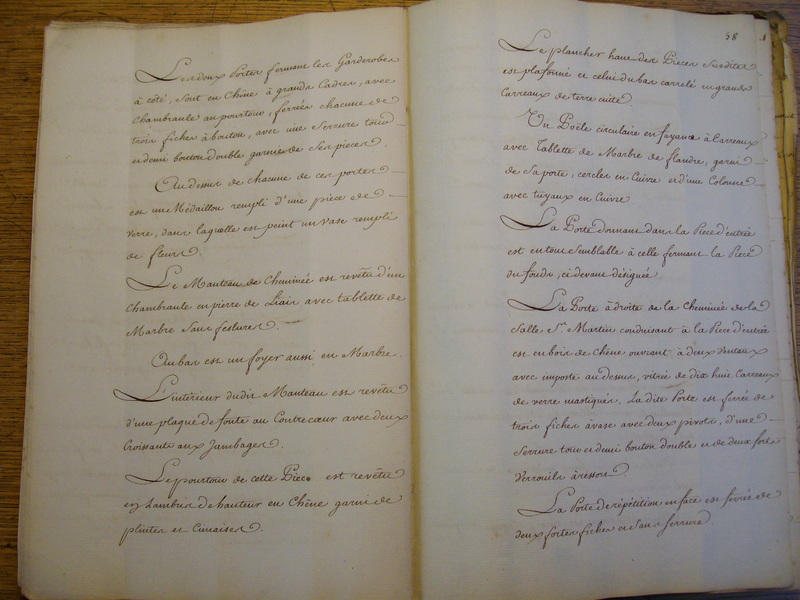 Les deux Portes fermant les Garderobes
à côté, sont en Chêne à grands Cadres, avec
Chambranle au pourtour, ferrées chacune de
trois fiches à bouton, avec une Serrure tour
et demi bouton double garnie de Ses pieces.
Au dessus de chacune de ces portes
est un Médaillon rempli d'une piece de
verre, dans laquelle est peint un vase rempli
de fleurs.
Le Manteau de Cheminée est revêtu d'un
Chambranle en pierre de Liais avec tablette de
Marbre Sans feslures.
Au bas est un foyer aussi en Marbre.
L'intérieur dudit Manteau est revêtu
d'une plaque de fonte au Contrecoeur avec deux
Croissants aux Jambages.
Le pourtour de cette Piece est revêtu
en Lambris de hauteur en Chêne garni de
plintes et Cimaises.
58
Le plancher haut des Pieces Susdites
est plafonné et celui du bas carrelé en grands
Carreaux de terre cuite.
Un Poële circulaire en fayance à Carreaux
avec Tablette de Marbre de flandre, garni
de Sa porte, cercles en Cuivre et d'une Colonne
avec tuyaux en Cuivre
La Porte donnant dans la Piece d'entrée
est en tout Semblable à celle fermant la Piece
du fonds, ci devant désignée.
La Porte à droite de la Cheminée de la
Salle St. Martin conduisant à la Piece d'entrée
est en bois de chêne ouvrant à deux Ventaux
avec imposte au dessus, vitrée de dix huit Carreaux
de verre mastiqués. La dite Porte est ferrée de
trois fiches à vase avec deux pivots, d'une
Serrure tour et demi bouton double et de deux forts
Verrouils à ressort.
La Porte de répétition en face est ferrée de
deux fortes fiches et Sans Serrure.